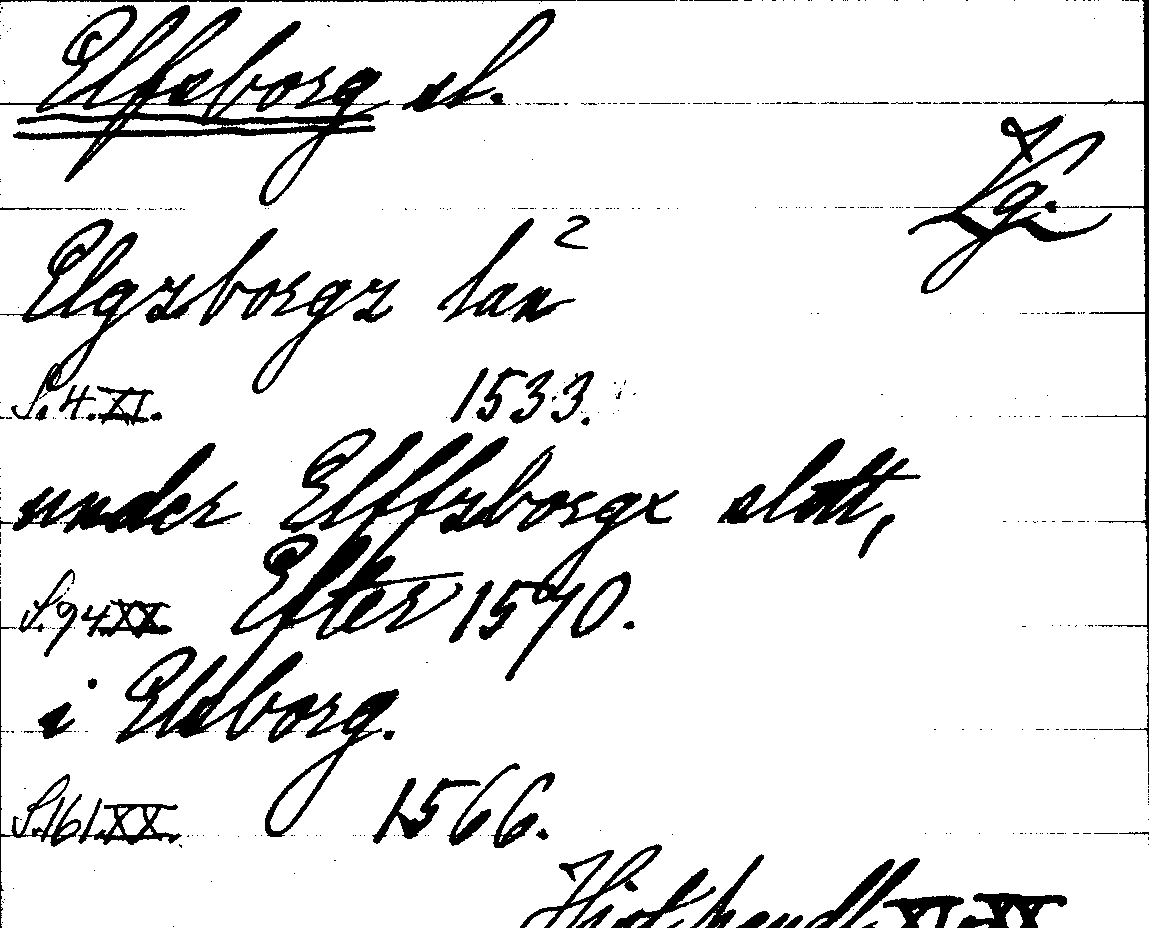 Elfsborg sl.
Vg.
Elgzborgz lan 2
S. 4. XI. 1533.
under Elffzborgx slott,
S. 94 XX. Efter 1570.
i Elsborg.
S. 161. XX. 1566.
Hist. handl. XI. XX